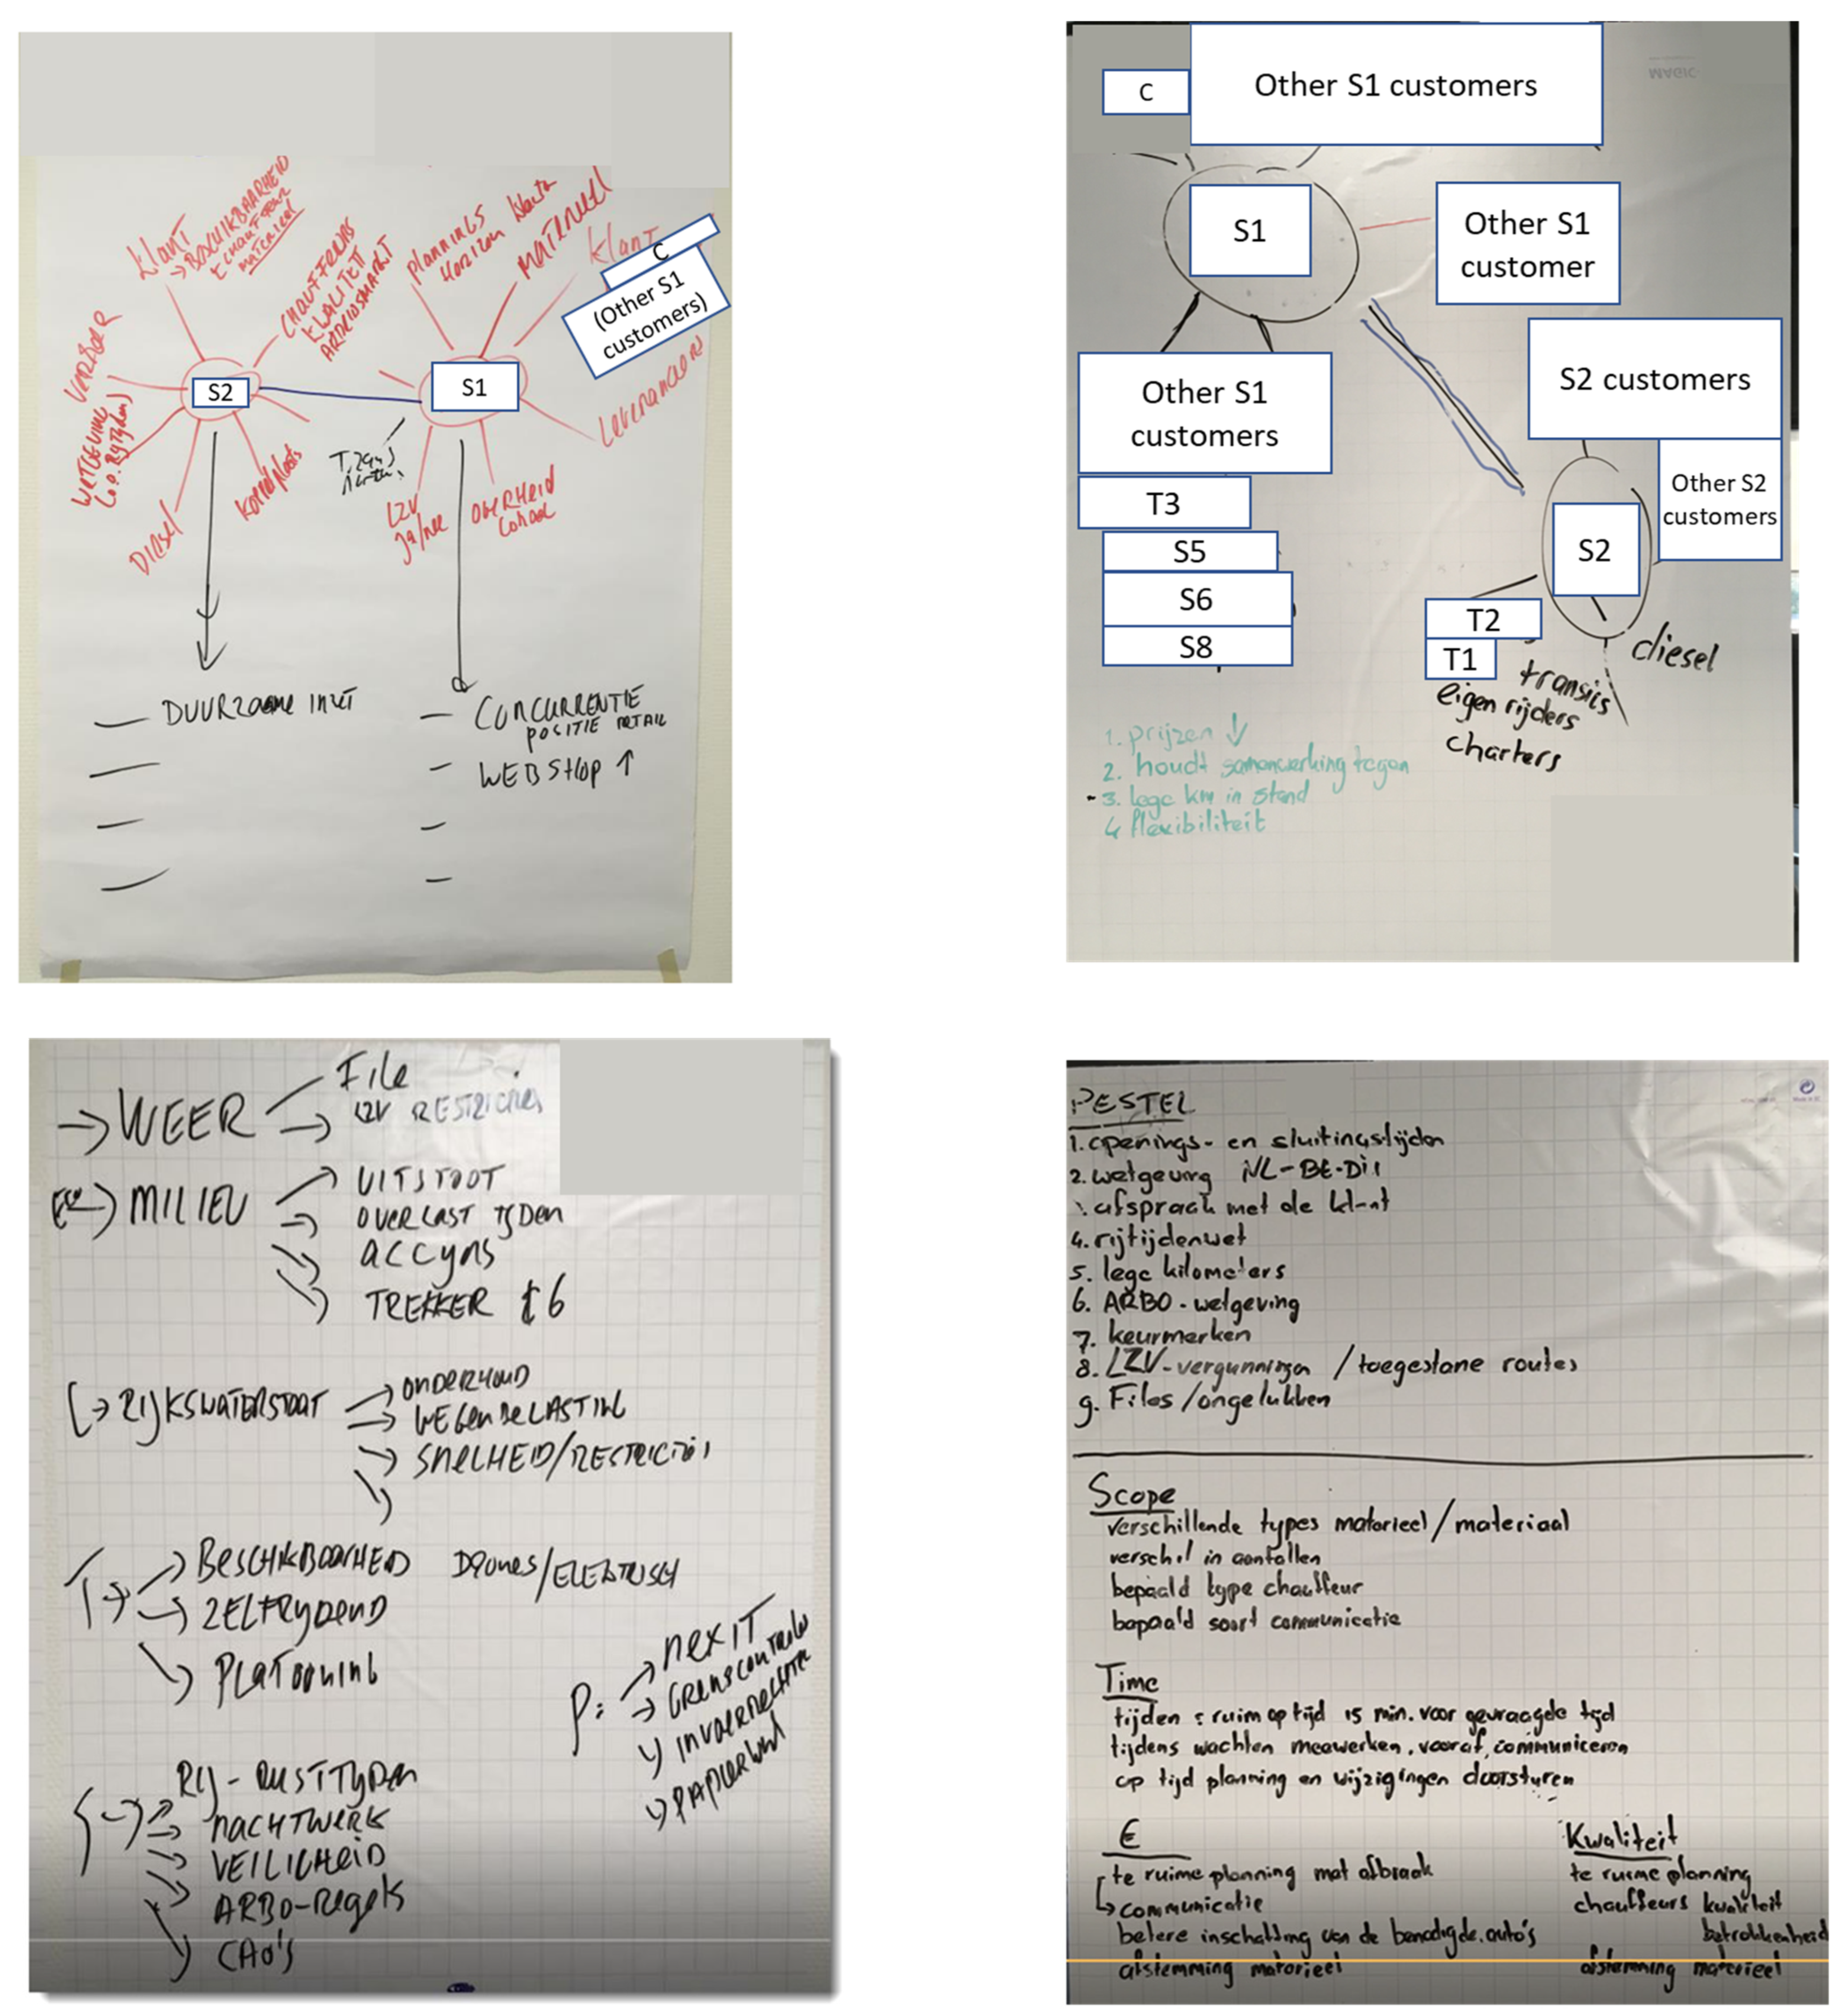 klant
→ BESCHIKBAARHEID
materieel
CHAUFFEURS
KWALITEIT
ARBEIDSMARKT
PLANNINGS
Horizon klant
MATERIEEL
klant
C
(Other S1
customers)
Leveranciers
S2
S1
WETGEVING
DIESEL
LZV
Ja/nee
OVERHEID
Lokaal
DUURZAME INZET
CONCURRENTIE
POSITIE RETAIL
WEBSHOP ↑
C
Other S1 customers
S1
Other S1
customer
Other S1
customers
S2 customers
Other S2
customers
T3
S5
S6
S8
S2
T2
T1
diesel
transics
eigen rijders
charters
1. prijzen ↓
2. houdt samenwerking tegen
3. lege km in stand
4 flexibiliteit
→ WEER
File
LZV RESTRICTIES
MILIEU
UITSTOOT
OVERLAST TIJDEN
ACCIJNS
TREKKER €6
→ RIJKSWATERSTAAT
ONDERHOUD
WEGENBELASTING
SNELHEID/RESTRICTIES
T →
BESCHIKBAARHEID DRONES/ELEKTRISCH
ZELFRIJDEND
PLATOONING
P:
NEXIT
GRENSCONTROLE
INVOERRECHTEN
PAPIERWERK
RIJ-RUSTTIJDEN
NACHTWERK
VEILIGHEID
ARBO-Regels
CAO's
PESTEL
1. openings- en sluitingstijden
2. wetgeving NL-BE-DU
afspraak met de klant
4. rijtijdenwet
5. lege kilometers
6. ARBO-wetgeving
7. keurmerken
8. LZV-vergunningen /toegestane routes
9. Files/ongelukken
Scope
verschillende types materieel/materiaal
verschil in aantallen
bepaald type chauffeur
bepaald soort communicatie
Time
tijden : ruim op tijd 15 min. voor gevraagde tijd
tijdens wachten meewerken, vooraf communiceren
op tijd planning en wijzigingen doorsturen
€
te ruime planning met afbraak
↳ communicatie
betere inschatting van de benodigde auto's
afstemming materieel
Kwaliteit
te ruime planning
chauffeurs kwaliteit
betrokkenheid
afstemming materieel